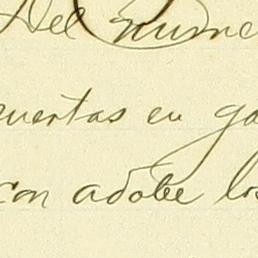 Del nume
uertas en ga
con adobe los